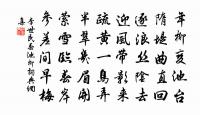 年柳变池台
隋堤曲直回
逐浪丝陰去
迎風帶影来
疏黄一鳥弄
半翠幾眉開
縈雪臨春岸
參差間早梅
李世民春池柳詞典網
集